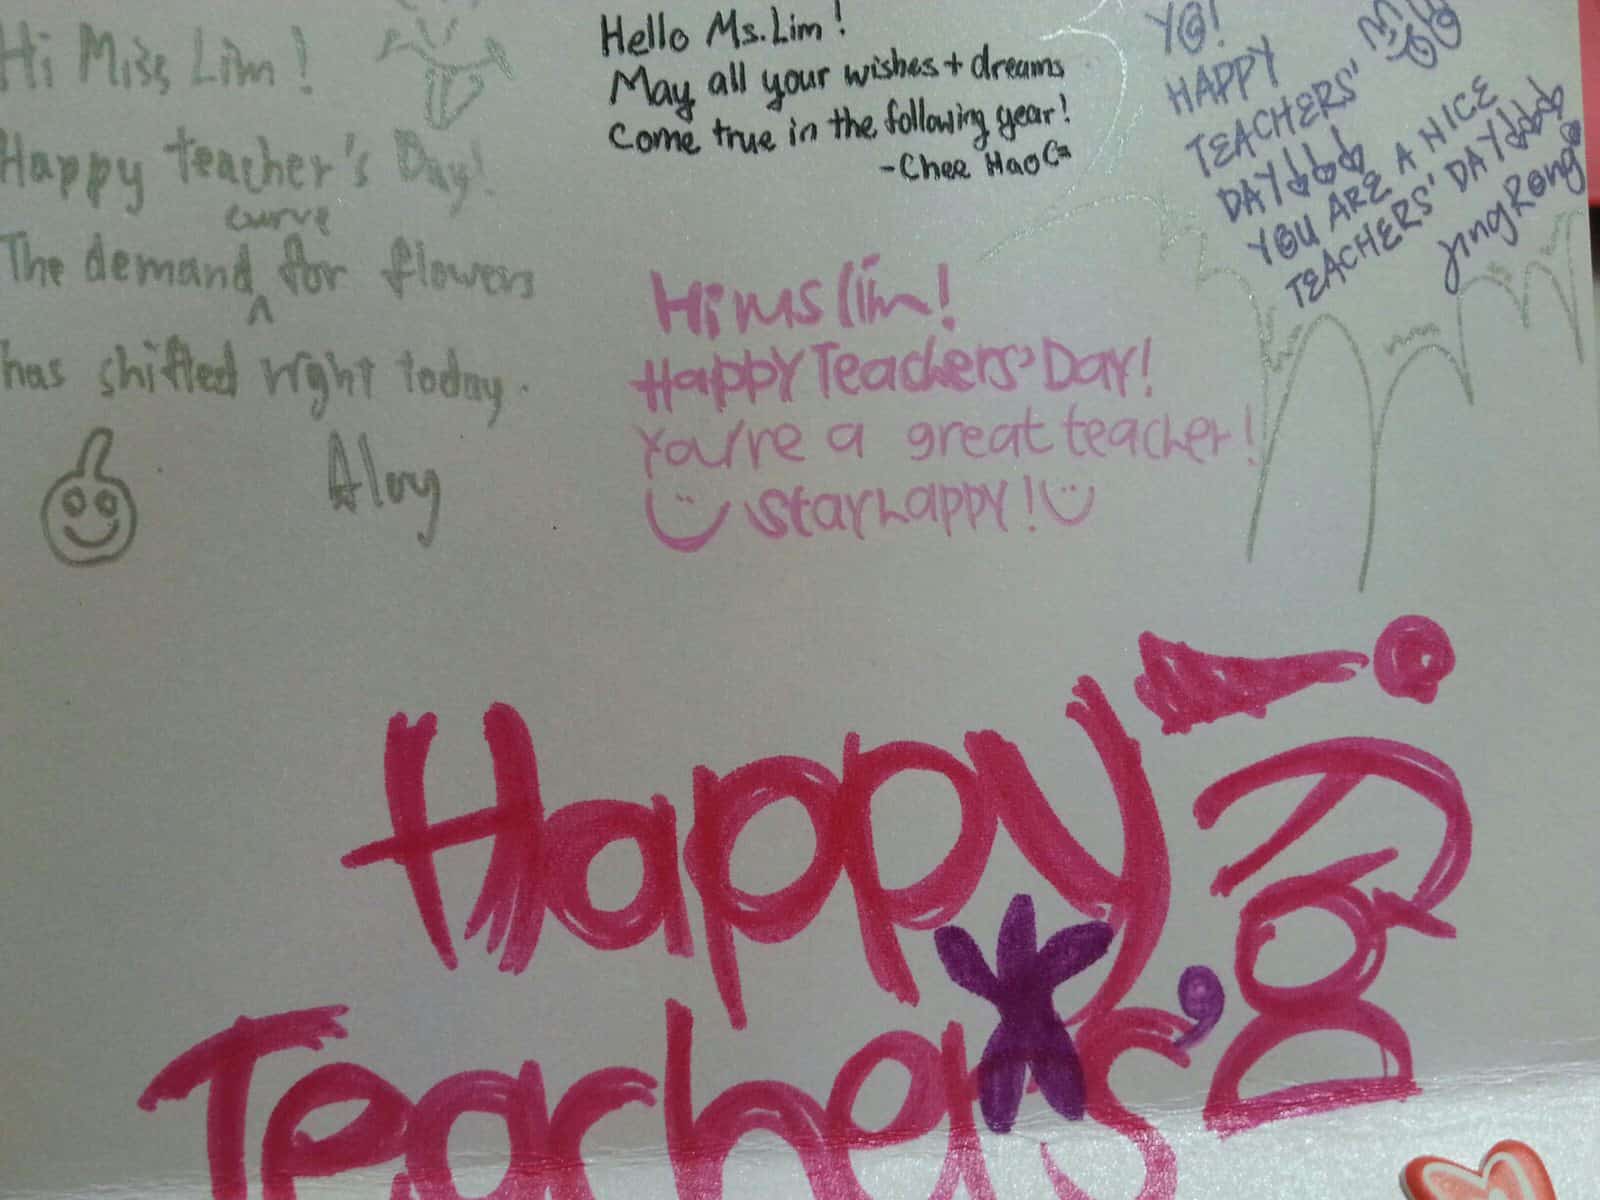 Hi Miss Lim!
Happy teacher's Day!
curve
The demand ^ for flowers
has shifted right today.
Aloy
Hello Ms. Lim!
May all your wishes + dreams
Come true in the following year!
- Chee Hao
YO!
HAPPY
TEACHERS'
DAY!!!
YOU ARE A NICE
TEACHERS' DAY!!!
Jing Rong
Hi Ms Lim!
Happy Teachers' Day!
You're a great teacher!
Stay happy!
Happy
Teachers'
Day!